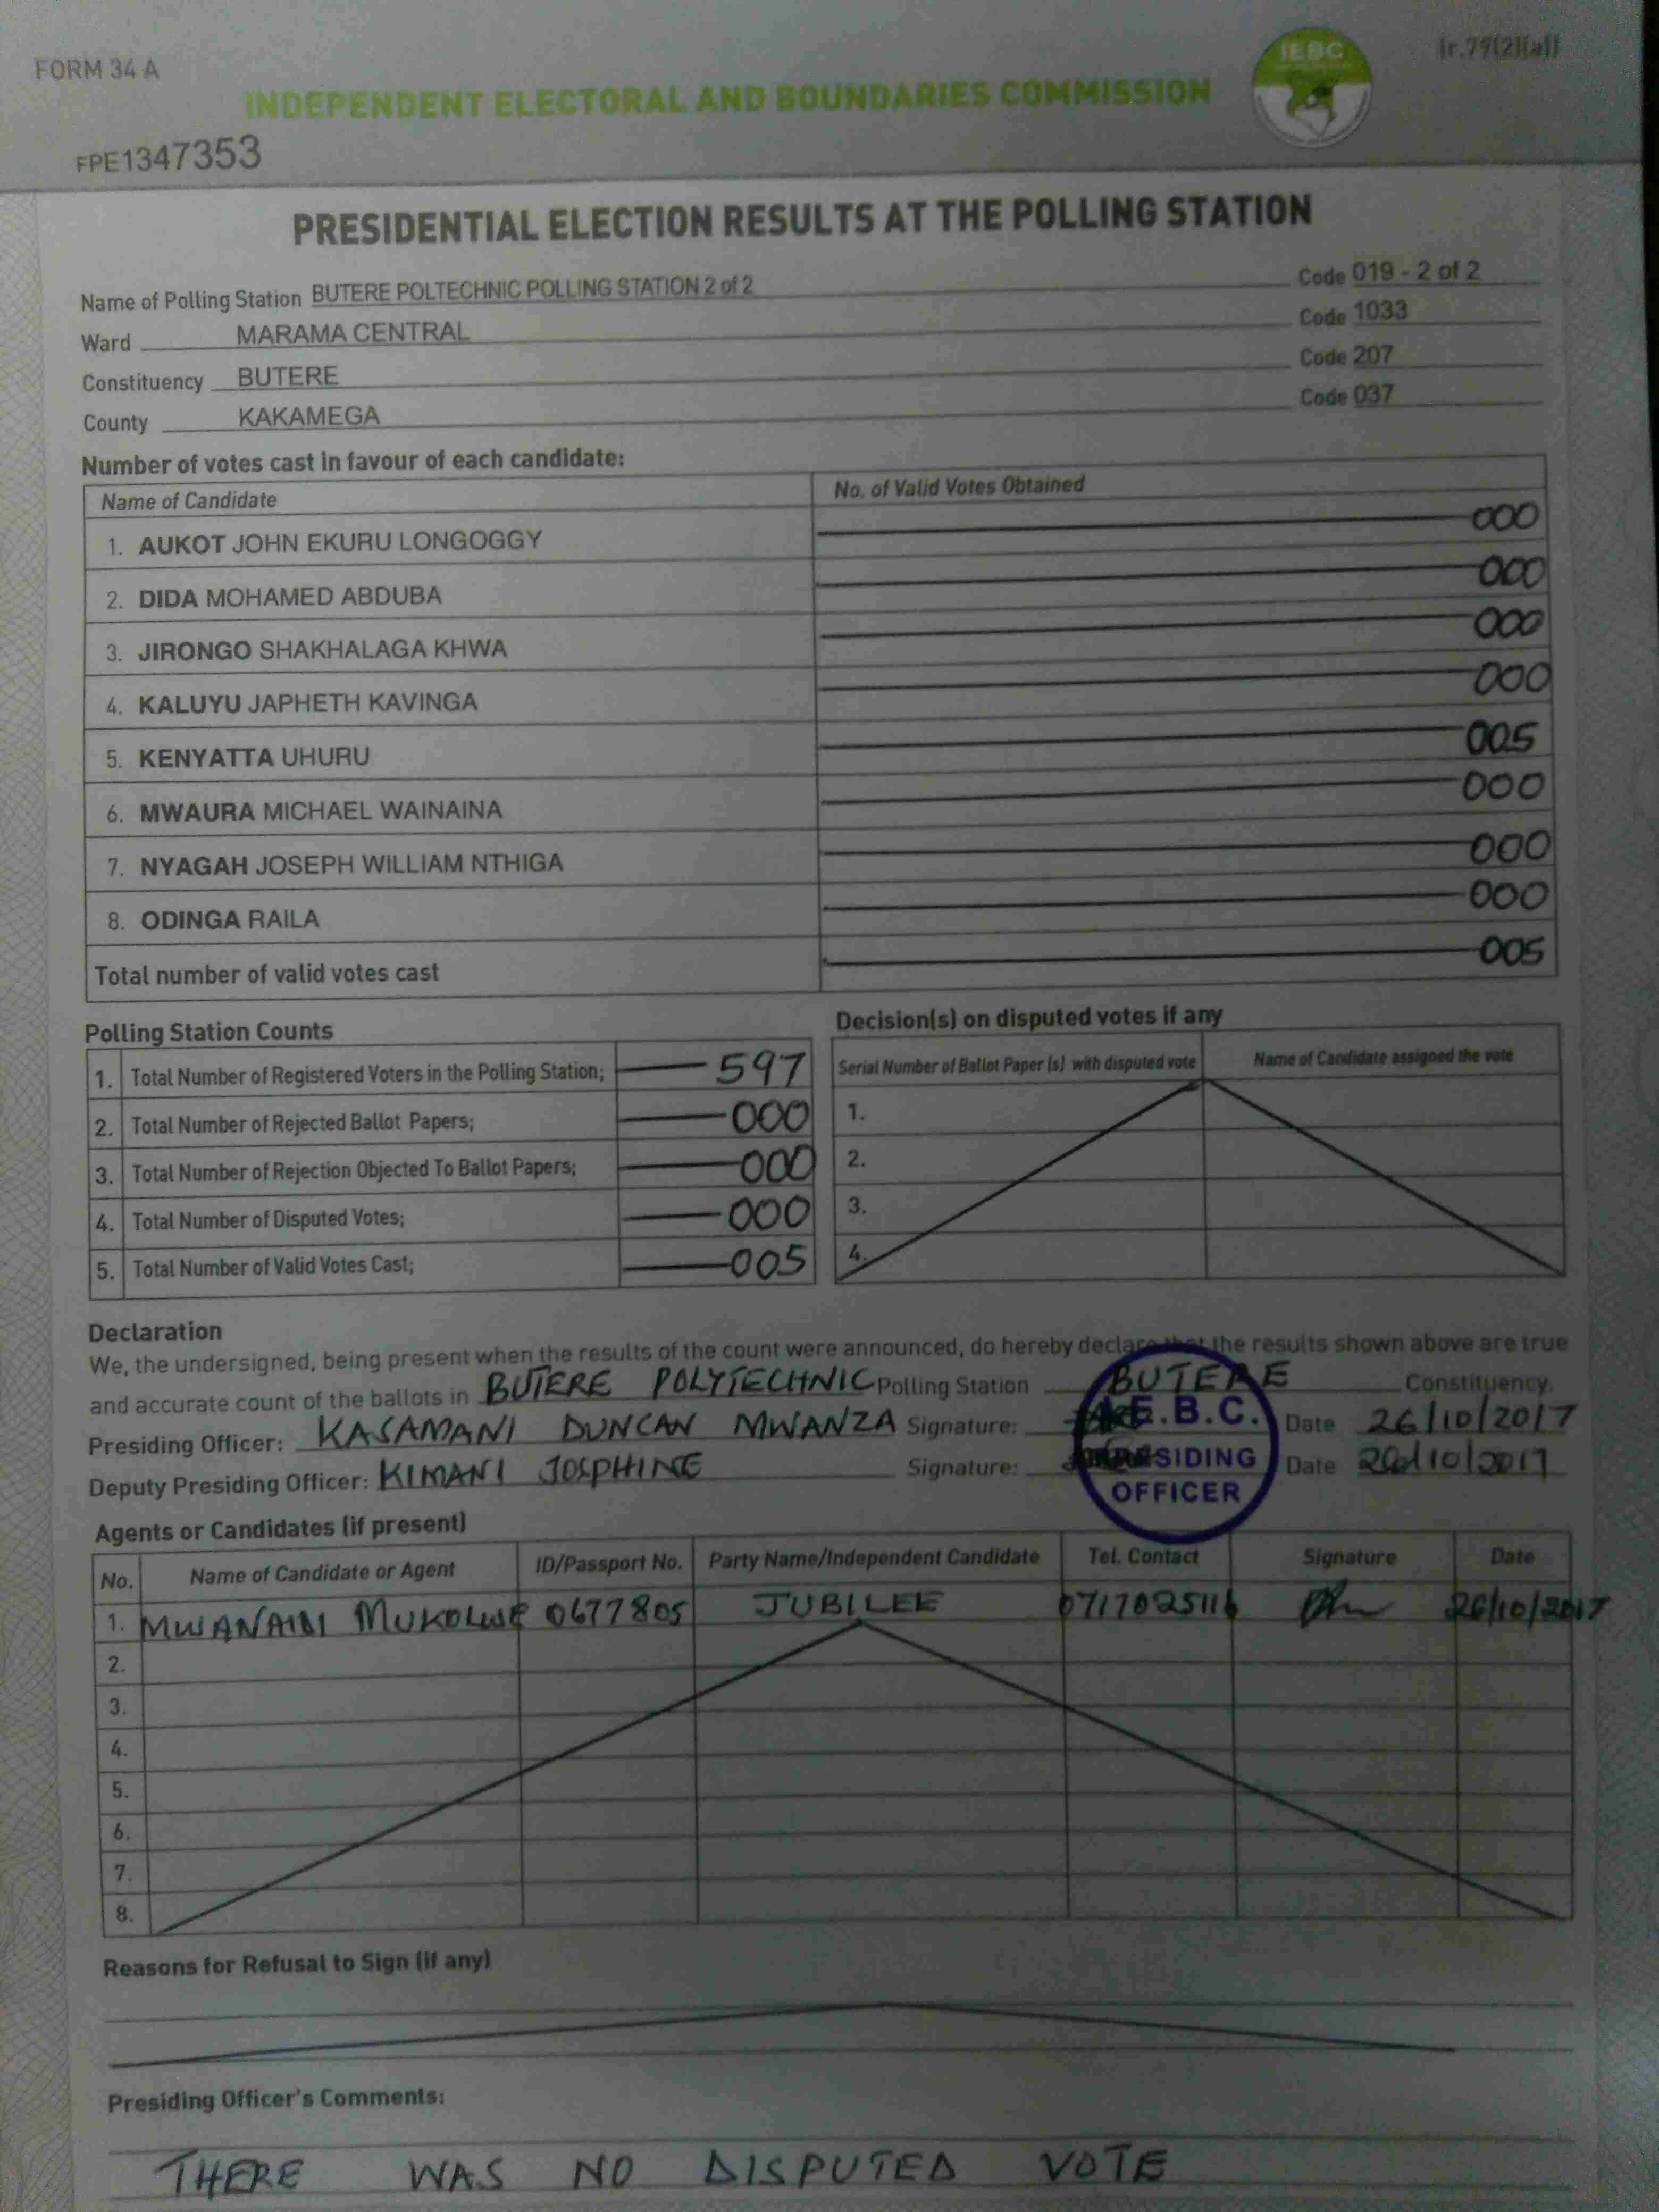 FORM 34 A
(r.79(2)(a))
IEBC
INDEPENDENT ELECTORAL AND BOUNDARIES COMMISSION
FPE1347353
PRESIDENTIAL ELECTION RESULTS AT THE POLLING STATION
Name of Polling Station BUTERE POLTECHNIC POLLING STATION 2 of 2 Code 019 - 2 of 2
Ward MARAMA CENTRAL Code 1033
Constituency BUTERE Code 207
County KAKAMEGA Code 037
Number of votes cast in favour of each candidate:
Name of Candidate No. of Valid Votes Obtained
1. AUKOT JOHN EKURU LONGOGGY 000
2. DIDA MOHAMED ABDUBA 000
3. JIRONGO SHAKHALAGA KHWA 000
4. KALUYU JAPHETH KAVINGA 000
5. KENYATTA UHURU 005
6. MWAURA MICHAEL WAINAINA 000
7. NYAGAH JOSEPH WILLIAM NTHIGA 000
8. ODINGA RAILA 000
Total number of valid votes cast 005
Polling Station Counts
1. Total Number of Registered Voters in the Polling Station; 597
2. Total Number of Rejected Ballot Papers; 000
3. Total Number of Rejection Objected To Ballot Papers; 000
4. Total Number of Disputed Votes; 000
5. Total Number of Valid Votes Cast; 005
Decision(s) on disputed votes if any
Serial Number of Ballot Paper (s) with disputed vote Name of Candidate assigned the vote
1.
2.
3.
4.
Declaration
We, the undersigned, being present when the results of the count were announced, do hereby declare that the results shown above are true
and accurate count of the ballots in BUTERE POLYTECHNIC Polling Station BUTERE Constituency.
Presiding Officer: KASAMANI DUNCAN MWANZA Signature: Date 26/10/2017
Deputy Presiding Officer: KIMANI JOSPHINE Signature: Date 26/10/2017
I.E.B.C.
PRESIDING
OFFICER
Agents or Candidates (if present)
No. Name of Candidate or Agent ID/Passport No. Party Name/Independent Candidate Tel. Contact Signature Date
1. MUKOLWE 0677805 JUBILEE 0717025116 26/10/2017
2.
3.
4.
5.
6.
7.
8.
Reasons for Refusal to Sign (if any)
Presiding Officer's Comments:
THERE WAS NO DISPUTED VOTE